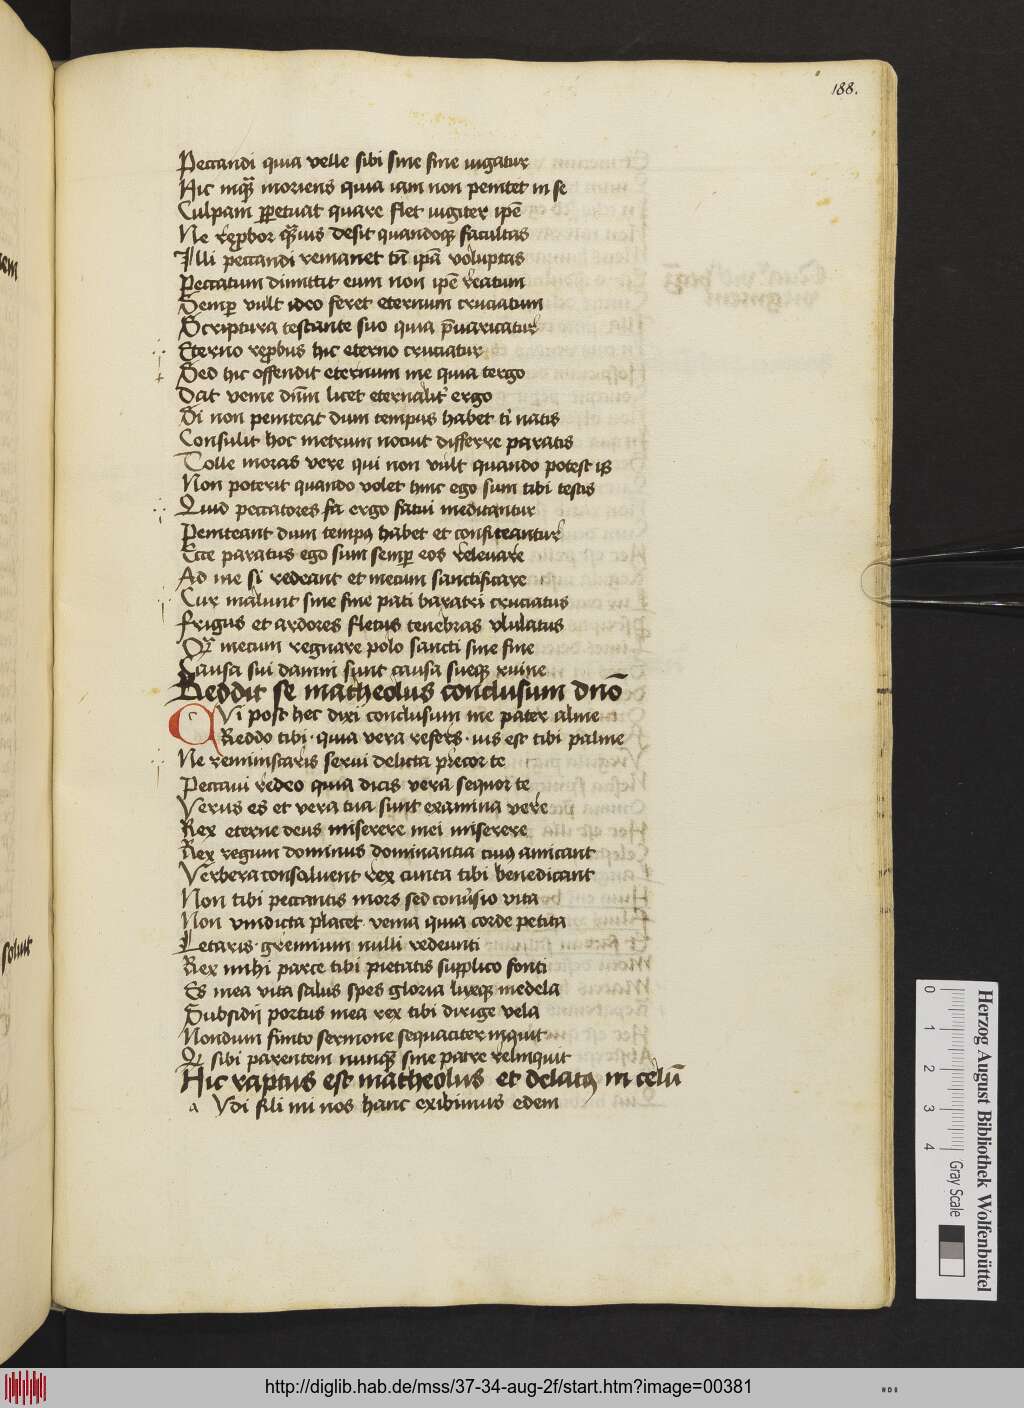 188.
Peccandi quia velle sibi sine fine iugatur
Hic inquā moriens quia iam non penitet in se
Culpam ꝑpetuat quare flet iugiter ipē
Ne reꝓbor quāuis desit quandoqꝫ facultas
Illi peccandi remanet tn̄ ipā voluptas
Peccatum dimittit eum non ipē reatum
Semꝑ vult ideo feret eternum cruciatum
Scriptura testante suo quia p̄uaricatur
Eterno reꝓbus hic eterno cruciatur
Sed hic offendit eternum me quia tergo
Dat veine dn̄m licet eternalit ergo
Si non peniteat dum tempus habet ti natis
Consulit hoc metrum nocuit differre paratis
Tolle moras vere qui non vult quando potest is
Non poterit quando volet hinc ego sum tibi testis
Quid peccatores fa ergo fatui meditantur
Peniteant dum tempꝰ habet et confiteantur
Ecce paratus ego sum semꝑ eos releuare
Ad me si redeant et mecum sanctificare
Cur malunt sine fine pati baratri cruciatus
Frigus et ardores fletus tenebras vlulatus
mecum regnare polo sancti sine fine
Causa sui damni sunt causa sueqꝫ ruine
Reddit se matheolus conclusum dn̄o
QVi post hec dixi conclusum me pater alme
Reddo tibi · quia vera refers · ius est tibi palme
Ne reminiscaris serui delicta precor te
Peccaui redeo quia dicis vera sequor te
Verus es et vera tua sunt examina vere
Rex eterne deus miserere mei miserere
Rex regum dominus dominantia cuiꝰ amicant
Verbera consoluent rex cuncta tibi benedicant
Non tibi peccantis mors sed conūsio vita
Non vindicta placet venia quia corde petita
Letaris gremium nulli redeunti
Rex mihi parce tibi pietatis supplico fonti
Es mea vita salus spes gloria luxqꝫ medela
Subsidij portus mea rex tibi dirige vela
Nondum finito sermone sequaciter inquit
sibi parentem nunquā sine patre relinquit
Hic raptus est matheolus et delatꝰ in celū
a Vdi fili mi nos hanc exibimus edem
soluit
Herzog August Bibliothek Wolfenbüttel
0 1 2 3 4
Gray Scale
http://diglib.hab.de/mss/37-34-aug-2f/start.htm?image=00381